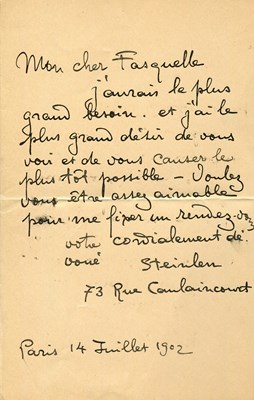 Mon cher Fasquelle
j'aurais le plus
grand besoin. et j'ai le
plus grand désir de vous
voir et de vous causer le
plus tôt possible – Voulez
vous être assez aimable
pour me fixer un rendez-vo
us
votre cordialement dé
voué Steinlen
73 Rue Caulaincourt
Paris 14 Juillet 1902